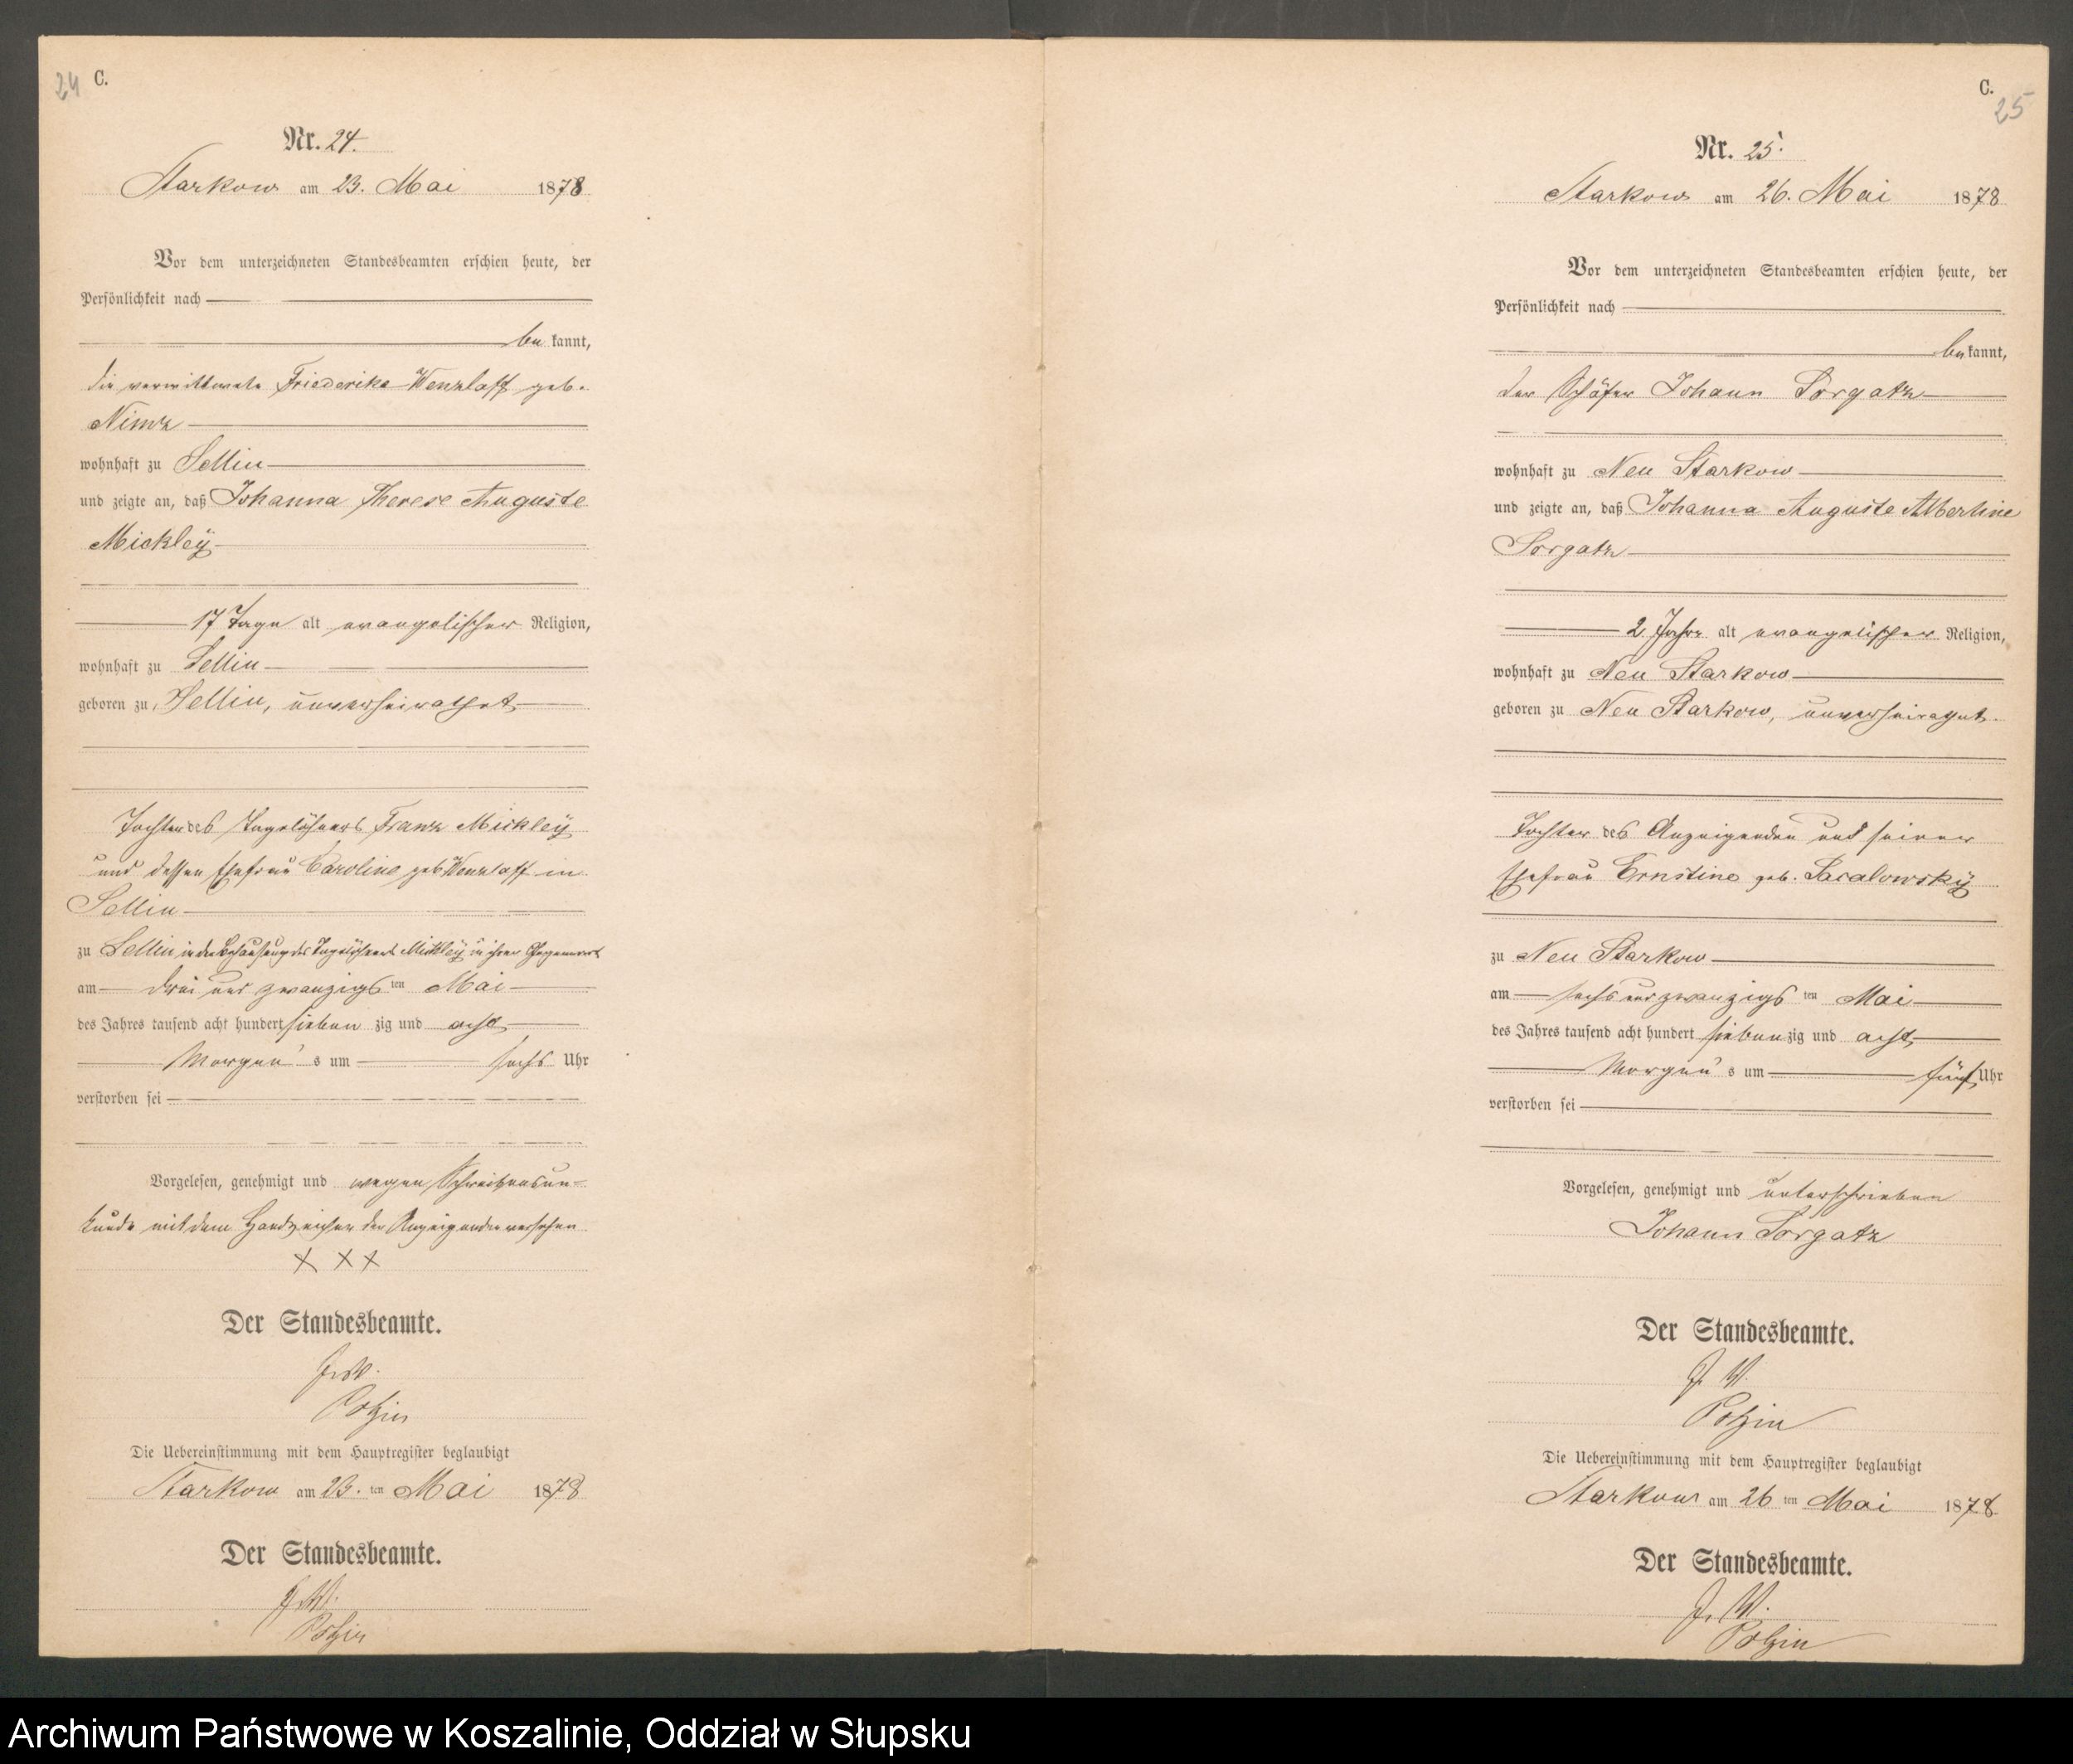 24 C.
Nr. 24.
Starkow am 23. Mai 1878
Vor dem unterzeichneten Standesbeamten erschien heute, der
Persönlichkeit nach
be kannt,
die verwittwete Friederike Wenzlaff geb.
Nimz
wohnhaft zu Sellin
und zeigte an, daß Johanna Therese Auguste
Mickley
17 Tage alt evangelischer Religion,
wohnhaft zu Sellin
geboren zu Sellin, unverheirathet
Tochter des Tagelöhners Franz Mickley
und dessen Ehefrau Caroline geb. Wenzlaff in
Sellin
zu Sellin in der Behausung des Tagelöhners Mickley in ihrer Gegenwart
am drei und zwanzigs ten Mai
des Jahres tausend acht hundert sieben zig und acht
Morgen s um sechs Uhr
verstorben sei
Vorgelesen, genehmigt und wegen Schreibensun=
kunde mit dem Handzeichen der Anzeigenden versehen
X X X
Der Standesbeamte.
J. V.
Polzin
Die Uebereinstimmung mit dem Hauptregister beglaubigt
Starkow am 23. ten Mai 1878
Der Standesbeamte.
J. V.
Polzin
C.
25
Nr. 25.
Starkow am 26. Mai 1878
Vor dem unterzeichneten Standesbeamten erschien heute, der
Persönlichkeit nach
be kannt,
der Schäfer Johann Sorgatz
wohnhaft zu Neu Starkow
und zeigte an, daß Johanna Auguste Albertine
Sorgatz
2 Jahre alt evangelischer Religion,
wohnhaft zu Neu Starkow
geboren zu Neu Starkow, unverheirathet.
Tochter des Anzeigenden und seiner
Ehefrau Ernstine geb. Sacalowsky
zu Neu Starkow
am sechs und zwanzigs ten Mai
des Jahres tausend acht hundert sieben zig und acht
Morgen s um fünf Uhr
verstorben sei
Vorgelesen, genehmigt und unterschrieben
Johann Sorgatz
Der Standesbeamte.
J. V.
Polzin
Die Uebereinstimmung mit dem Hauptregister beglaubigt
Starkow am 26 ten Mai 1878
Der Standesbeamte.
J. V.
Polzin
Archiwum Państwowe w Koszalinie, Oddział w Słupsku